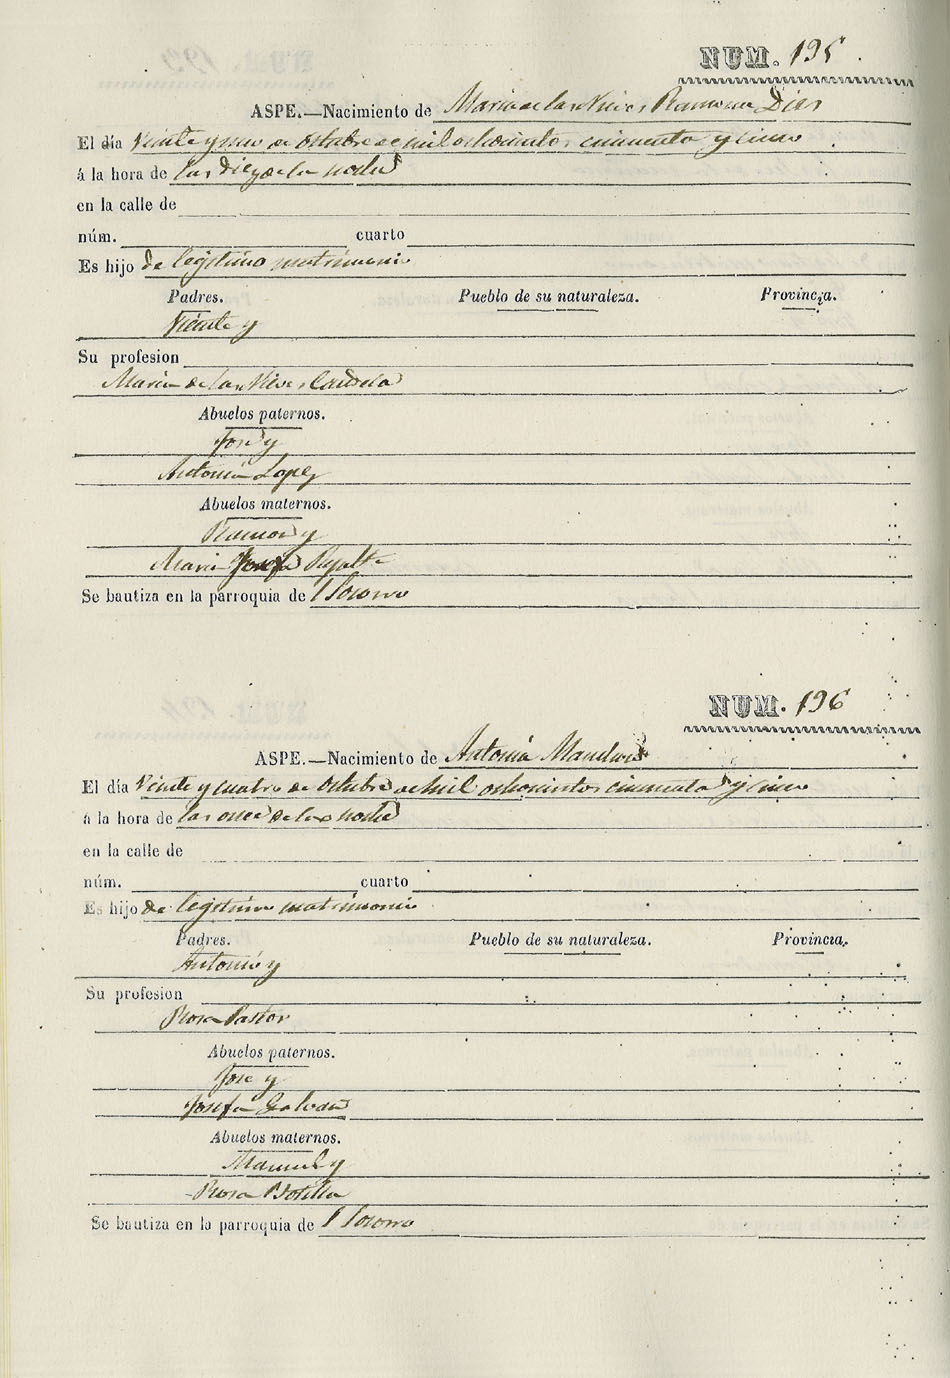 NUM. 195
ASPE.—Nacimiento de Maria de las Nieves Ramona Dies
El día Veinte y uno de octubre de mil ochocientos cincuenta y cinco
á la hora de las diez de la noche
en la calle de
núm. cuarto
Es hijo de legitimo matrimonio
Padres. Pueblo de su naturaleza. Provincia.
Vicente y
Su profesion
Maria de las Nieves Candela
Abuelos paternos.
José y
Antonia Lopez
Abuelos maternos.
Ramon y
Maria Josefa
Se bautiza en la parroquia de l Socorro
NUM. 196
ASPE.—Nacimiento de Antonia
El día Veinte y cuatro de octubre de mil ochocientos cincuenta y cinco
á la hora de las once de la noche
en la calle de
núm. cuarto
Es hijo de legitimo matrimonio
Padres. Pueblo de su naturaleza. Provincia.
Antonio y
Su profesion
Rosa Pastor
Abuelos paternos.
Jose y
Josefa Galvañ
Abuelos maternos.
Manuel y
Rosa Botella
Se bautiza en la parroquia de l Socorro